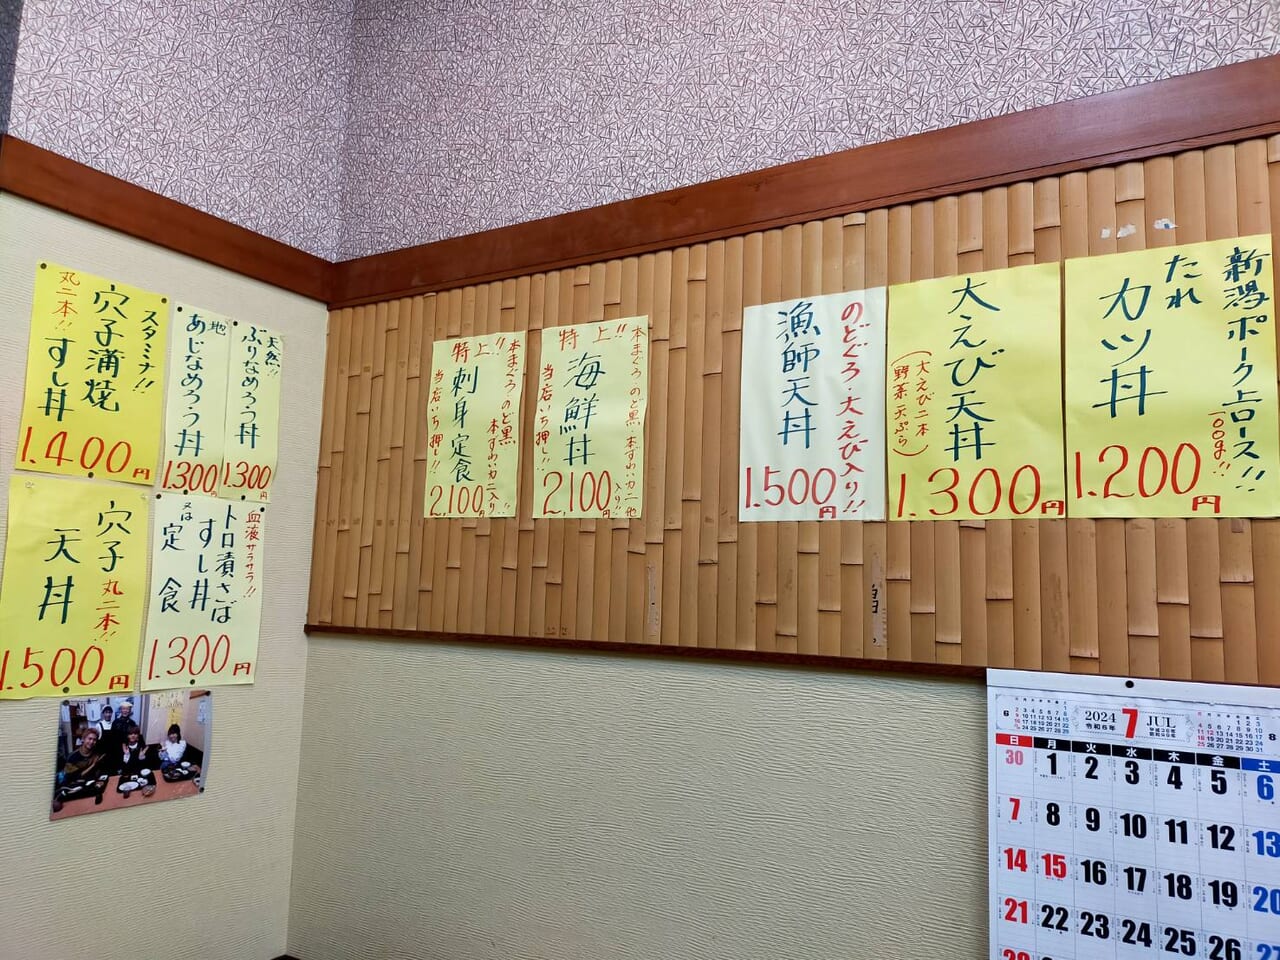 スタミナ!!
穴子蒲焼
すし丼
丸二本!!
1.400円
地
あじなめろう丼
1.300円
天然!!
ぶりなめろう丼
1.300円
穴子
天丼
丸二本!!
1.500円
血液サラサラ!!
トロ漬さば
すし丼
又は
定食
1.300円
特上!!
本まぐろ・のど黒
本ずわいカニ入り!!
刺身定食
当店いち押し!!
2,100円
特上!!
本まぐろ・のど黒・本ずわいカニ他
入り!!
海鮮丼
当店いち押し!!
2,100円
のどぐろ・大えび入り!!
漁師天丼
1.500円
大えび天丼
(大えび二本
野菜天ぷら)
1.300円
新潟ポーク上ロース!!
100g!!
たれ
カツ丼
1.200円
6
2024
令和6年
7
JUL
平成36年
昭和99年
8
日 月 火 水 木 金 土
30 1 2 3 4 5 6
7 8 9 10 11 12 13
14 15 16 17 18 19 20
21 22 23 24 25 26 27
28